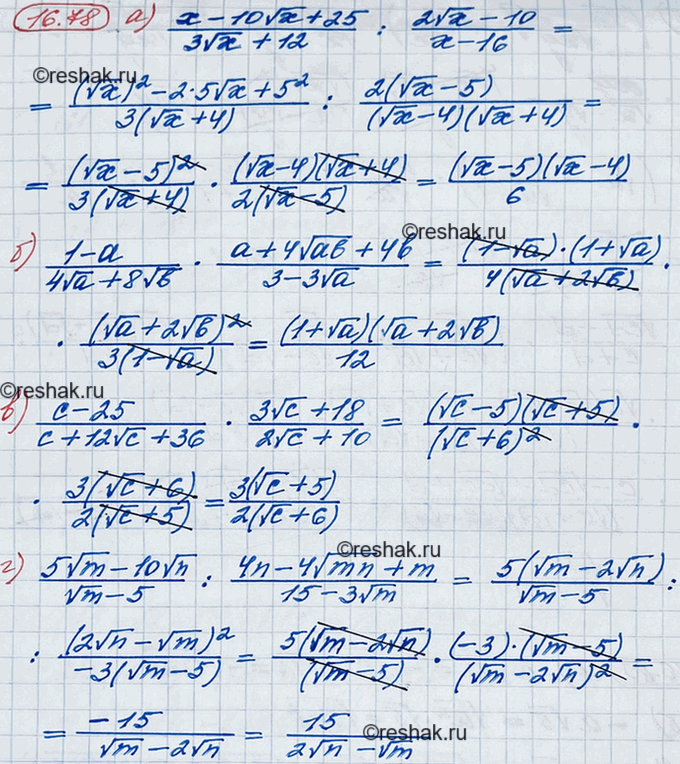 16.78 а) (x − 10√x + 25)/(3√x + 12) : (2√x − 10)/(x − 16) =
©reshak.ru
= ((√x)² − 2·5√x + 5²)/(3(√x + 4)) : 2(√x − 5)/((√x − 4)(√x + 4)) =
= (√x − 5)²/(3(√x + 4)) · (√x − 4)(√x + 4)/(2(√x − 5)) = (√x − 5)(√x − 4)/6
©reshak.ru
б) (1 − a)/(4√a + 8√b) · (a + 4√ab + 4b)/(3 − 3√a) = (1 − √a)·(1 + √a)/(4(√a + 2√b)) ·
· (√a + 2√b)²/(3(1 − √a)) = (1 + √a)(√a + 2√b)/12
©reshak.ru
в) (c − 25)/(c + 12√c + 36) · (3√c + 18)/(2√c + 10) = (√c − 5)(√c + 5)/(√c + 6)² ·
· 3(√c + 6)/(2(√c + 5)) = 3(√c + 5)/(2(√c + 6))
©reshak.ru
г) (5√m − 10√n)/(√m − 5) : (4n − 4√mn + m)/(15 − 3√m) = 5(√m − 2√n)/(√m − 5) :
: (2√n − √m)²/(−3(√m − 5)) = 5(√m − 2√n)/(√m − 5) · (−3)·(√m − 5)/(√m − 2√n)² =
= −15/(√m − 2√n) = 15/(2√n − √m)
©reshak.ru